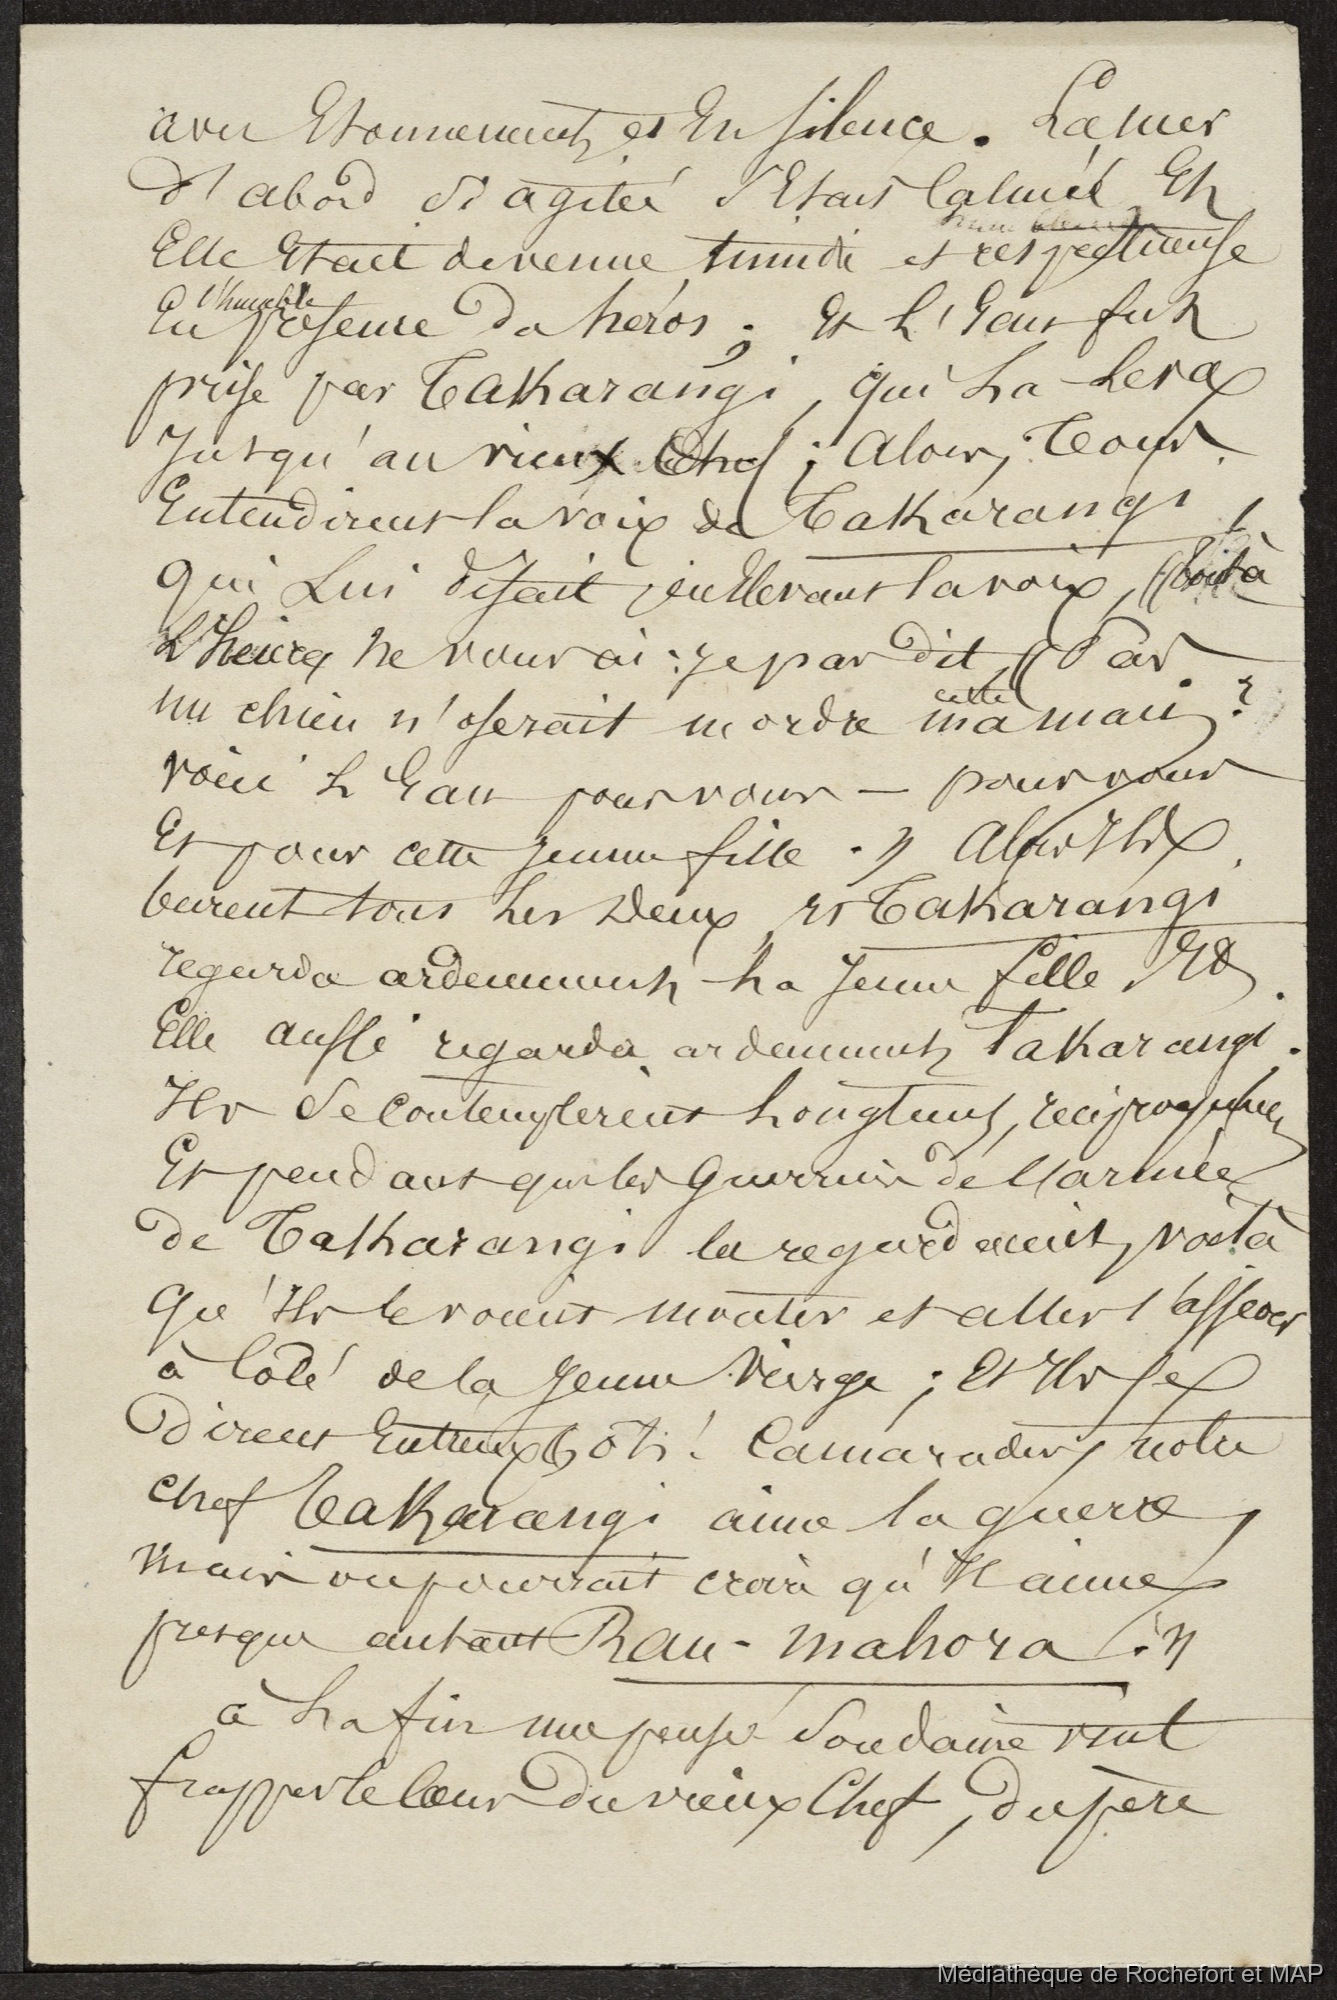 avec Etonnement, et En silence. La mer
d'abord si agitée s'Etait Calmée Et
Elle Etait devenue timide et respectueuse
l'humble
En présence du héros ; Et L'Eau fut
prise par Takarangi, qui La Leva
Jusqu'au vieux Chef ; alors, Tous
Entendirent la voix de Takarangi,
qui Lui disait, en Elevant la voix, (( tout à
L'heure ne vous ai-je pas dit, (( Pas
un chien n'oserait mordre ma main ?
cette
voici L'Eau pour vous — pour vous
Et pour cette jeune fille. )) Alors Ils
burent tous Les Deux, et Takarangi
regarda ardemment La Jeune fille, Et
Elle aussi regarda ardemment Takarangi.
Ils Se Contemplèrent Longtems,
Et pendant que les Guerriers de l'armée
de Takarangi la regardaient, voilà
que Ils le voient monter et aller s'asseoir
à Coté de la Jeune Vierge ; Et Ils se
dirent Entreux, (( ô ! Camarades, notre
chef Takarangi aime la guerre,
mais on pourrait croire qu'Il aime
presque autant Rau-mahora. ))
à La fin une pensée Soudaine vint
frapper le Coeur du vieux Chef, du père
Médiathèque de Rochefort et MAP